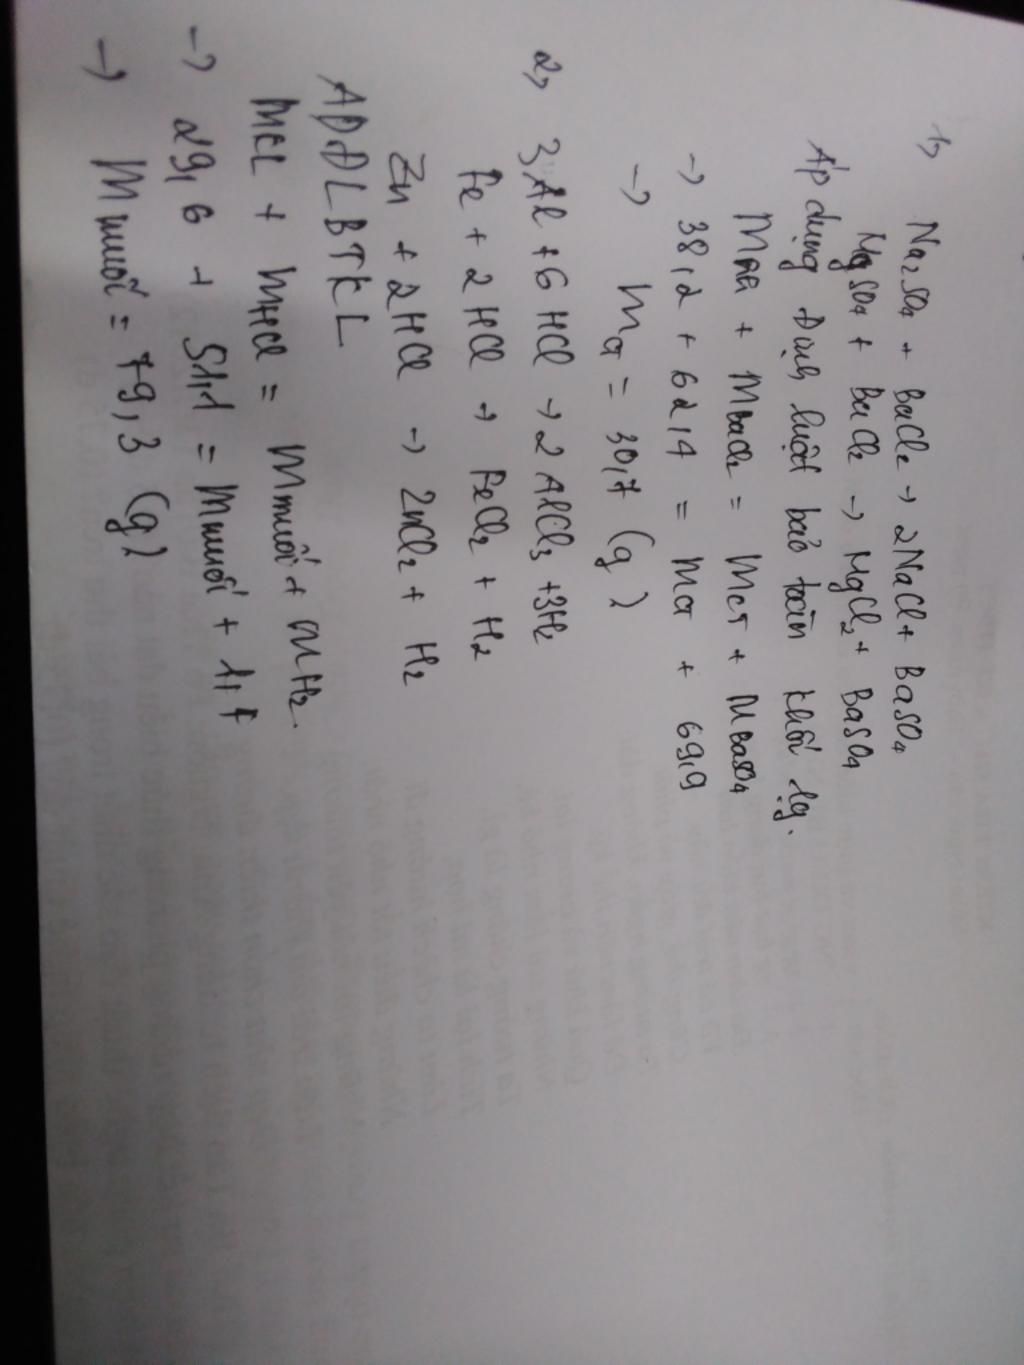 1, Na2SO4 + BaCl2 → 2NaCl + BaSO4
MgSO4 + BaCl2 → MgCl2 + BaSO4
Áp dụng Định luật bảo toàn khối lg.
+ mBaCl2 = + mBaSO4
→ 38,2 + 62,4 = + 69,9
→ = 30,7 (g)
2, 3Al + 6HCl → 2AlCl3 + 3H2
Fe + 2HCl → FeCl2 + H2
Zn + 2HCl → ZnCl2 + H2
ADĐLBTKL
+ mHCl = mmuối + mH2.
→ 29,6 + 51,1 = mmuối + 1,4
→ mmuối = 79,3 (g)